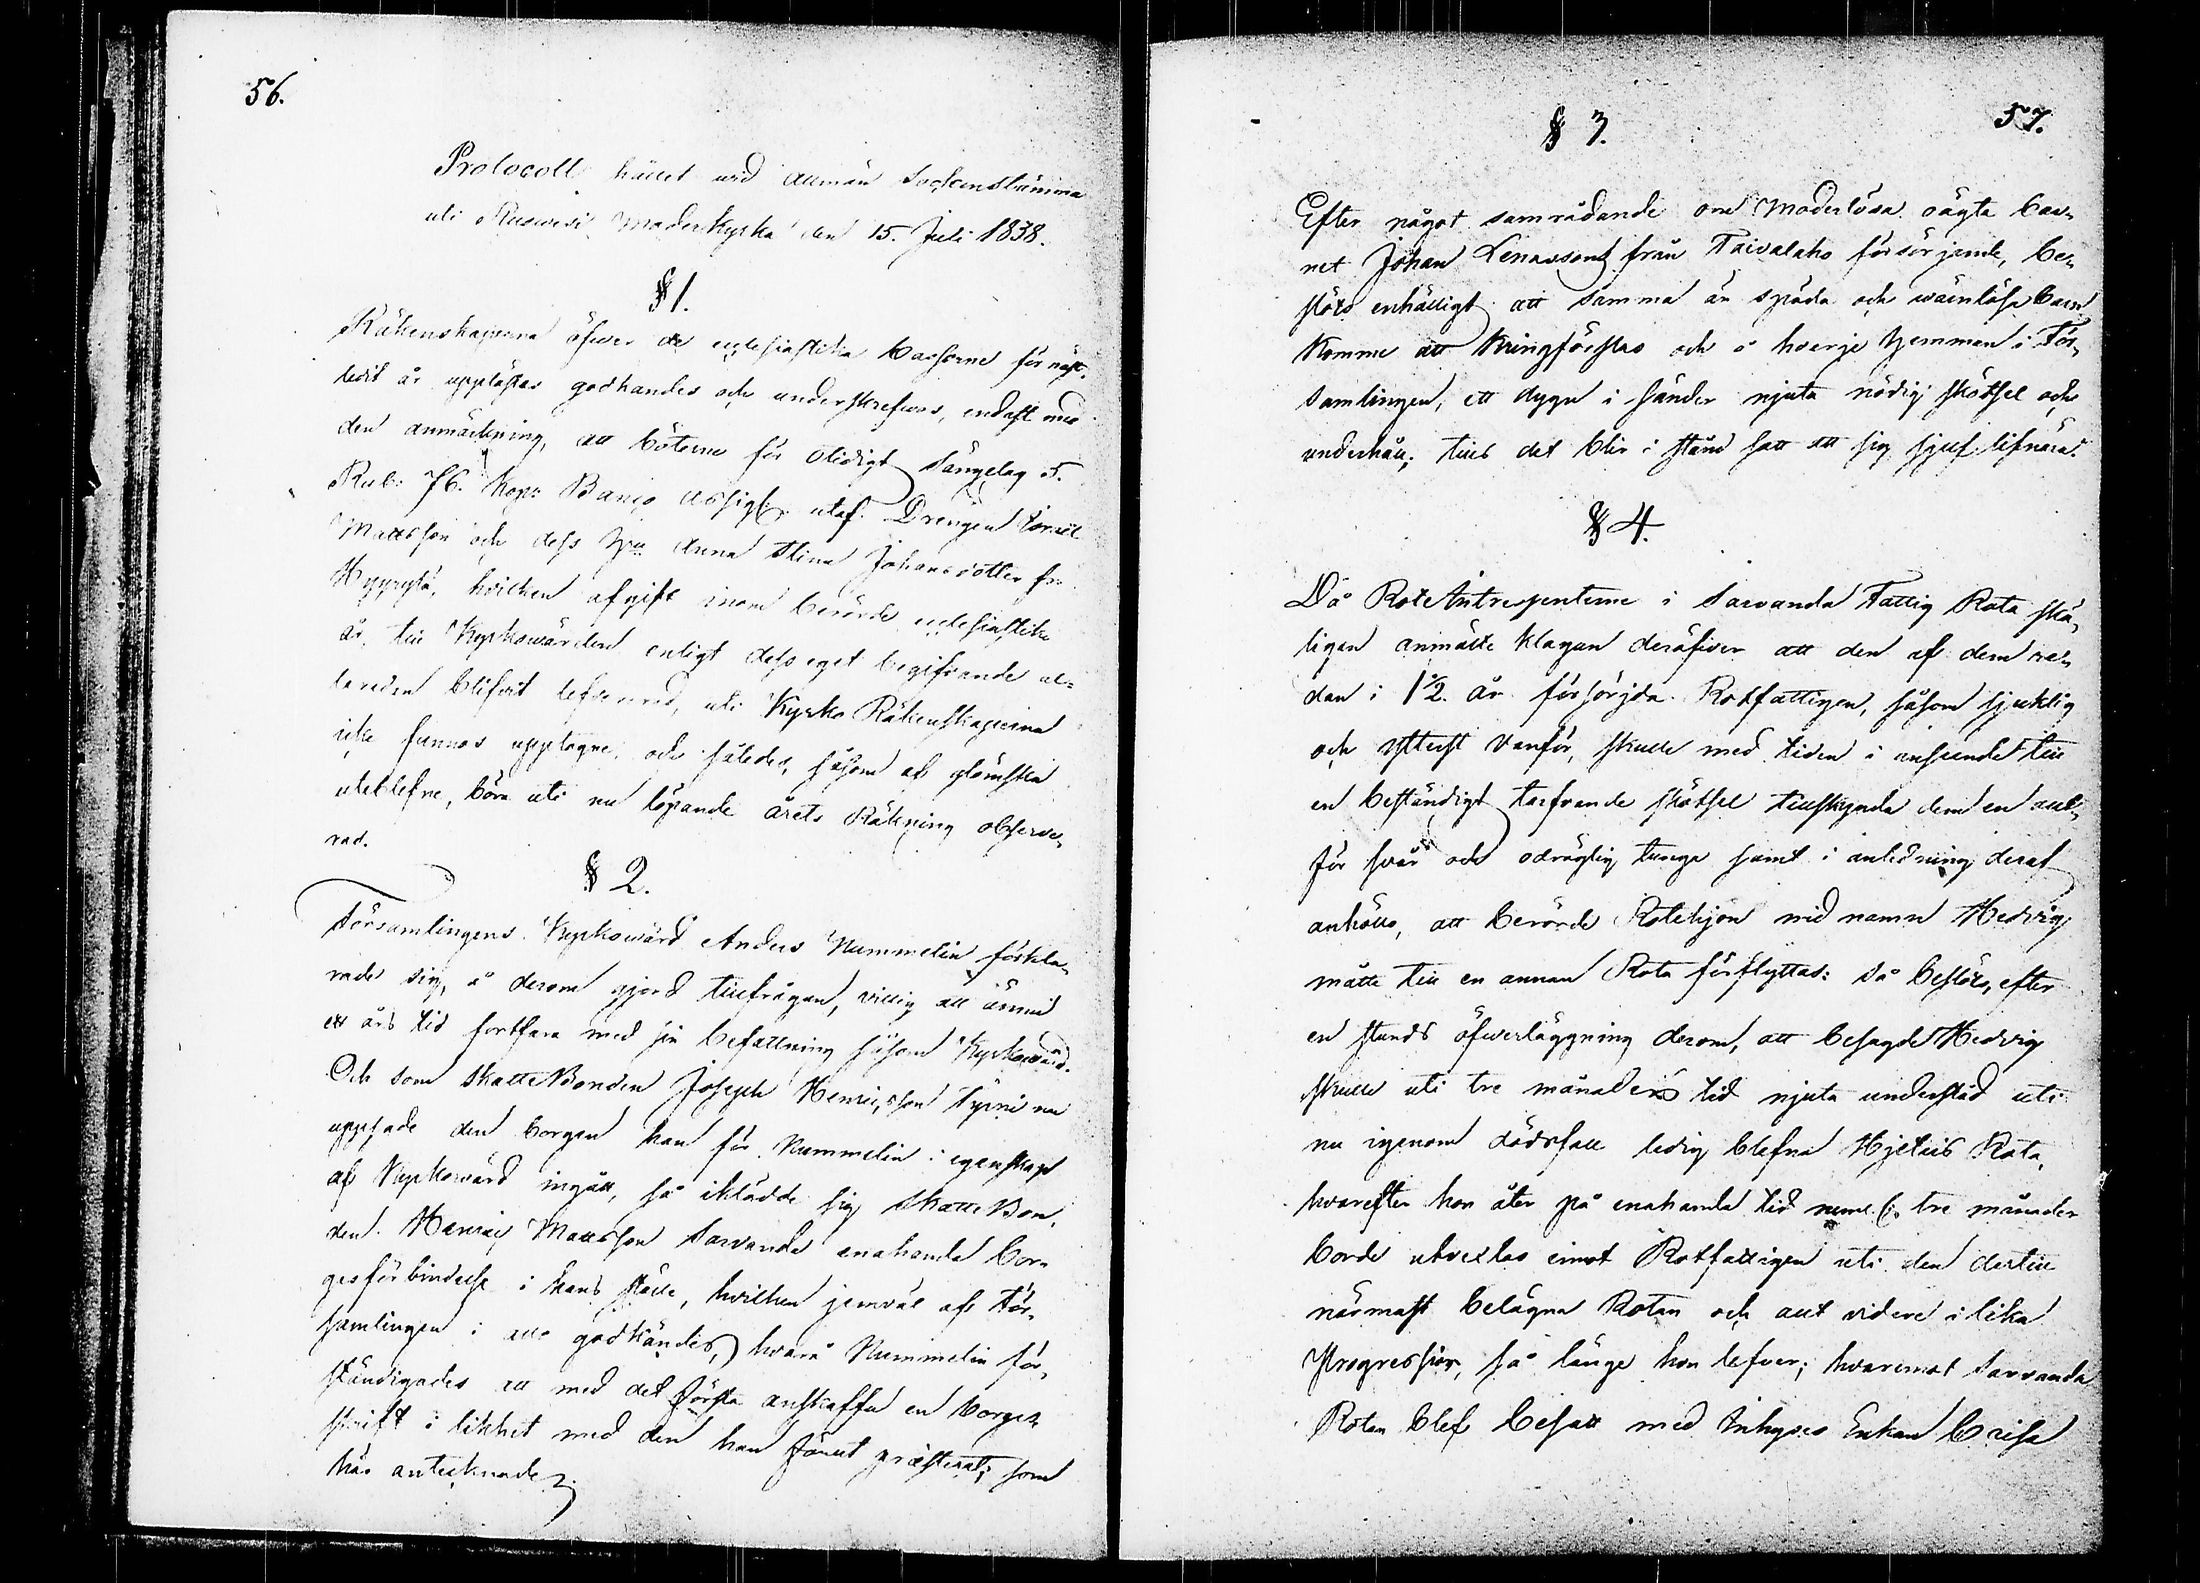 56.
Protocoll hållet vid allmän Sockenstämma
uti Ruovesi Moderkyrka den 15. Juli 1838.
§ 1.
Räkenskaperna öfver de ecclesiastika Cassorne för näst-
ledit år upplästes godkändes och underskrefvos, endast med
den anmärkning, att böterne för otidigt Sängelag 5.
Rub: 76. Kop: Banco Assign: utaf Drengen Israel
Mattsson och dess Hu Anna Stina Johansdotter fr:
Hyyrylä, hvilken afgift inom berörde ecclesiastike
år, till Kyrkowärden enligt dess eget begifvande al-
laredan blifvit lefvererad, uti Kyrko Räkenskaperna
icke funnos upptagne, och således, såsom af glömska
uteblefne, böra uti nu löpande årets Räkning observe-
rad.
§ 2.
Församlingens Kyrkowärd Anders Nummelin förkla-
rade sig, å derom gjord tillfrågan, villig att ännu
ett års tid fortfara med sin befattning såsom Kyrkowärd.
Och som Skattebonden Joseph Henricsson Tyrni nu
uppsade den borgen han för Nummelin i egenskap
af Kyrkowärd ingått, så iklädde sig Skattebon-
den Henric Mattsson Sarvanda enahanda bor-
gesförbindelse i hans ställe, hvilken jemväl af För-
samlingen i allo godkändes, hvarå Nummelin för-
ständigades att med det första anskaffa en borges-
skrift i likhet med den han förut præsterat; som
här antecknades.
57.
§ 3.
Efter något samrådande om Moderlösa oägta bar-
net Johan Lenasons från Taivalaho försörjande, be-
slöts enhälligt att samma än späda och wärnlösa barn
komme att kringförslas och å hvarje hemman i För-
samlingen, ett dygn i sänder njuta nödig skötsel och
underhåll; tills det blir i stånd satt att sig sjelf lifnära.
§ 4.
Då Rote Intressenterne i Sarvanda Fattig Rota skä-
ligen anmälte klagan deröfver att den af dem re-
dan i 1½ år försörjda Rotfattigen, såsom sjuklig
och ytterst vanför, skulle med tiden i anseende till
en beständigt tarfvande skötsel tillskynda dem en allt
för svår och odräglig tunga samt i anledning deraf
anhöllo, att berörde Rotehjon vid namn Hedvig
måtte till en annan Rota förflyttas: Så beslöts, efter
en stunds öfverläggning derom, att besagde Hedvig
skulle uti tre månaders tid njuta understöd uti
nu igenom dödsfall ledig blefna Hjelläs Rota,
hvarefter hon åter på enahanda tid neml. tre månader
borde utvexlas emot Rotfattigen uti den dertill
närmast belägna Rotan och allt vidare i lika
Progression, så länge hon lefver; hvaremot Sarvanda
Rotan blef besatt med Inhyses Enkan Caisa